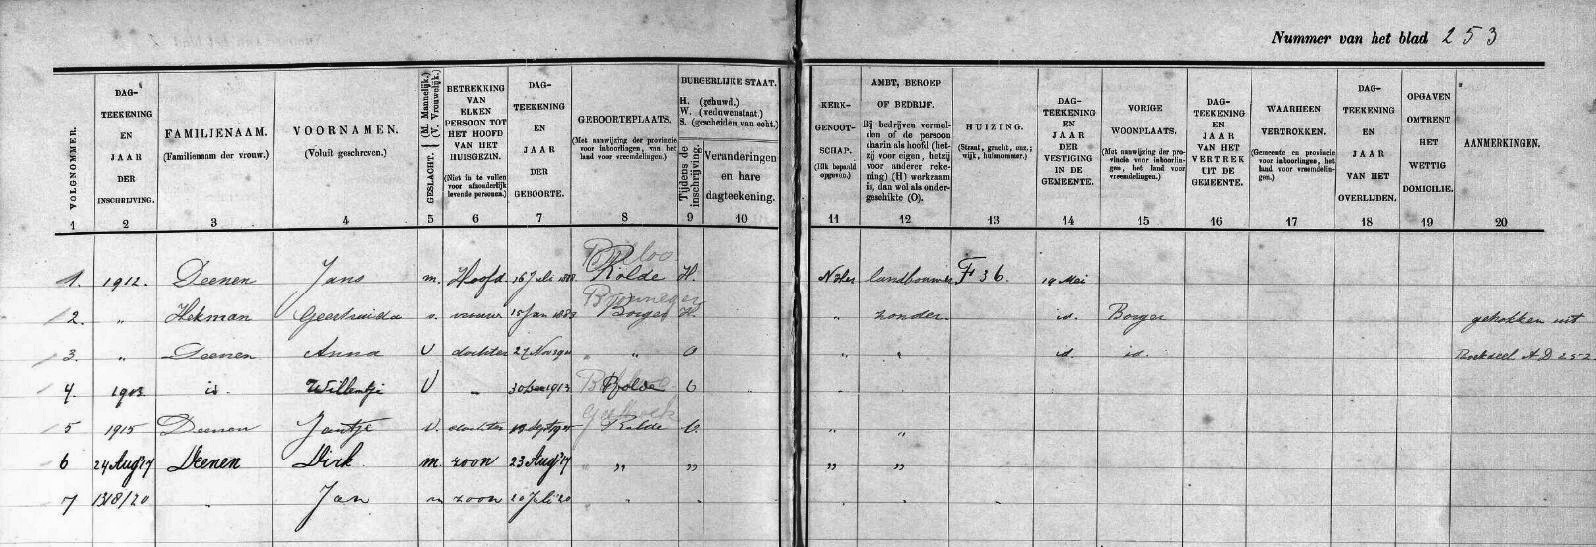 Nummer van het blad 253
VOLGNOMMER.
1
DAG-
TEEKENING
EN
JAAR
DER
INSCHRIJVING.
2
FAMILIENAAM.
(Familienaam der vrouw.)
3
VOORNAMEN.
(Voluit geschreven.)
4
GESLACHT. (M. Mannelijk.) (V. Vrouwelijk.)
5
BETREKKING
VAN
ELKEN
PERSOON TOT
HET HOOFD
VAN HET
HUISGEZIN.
(Niet in te vullen
voor afzonderlijk
levende personen.)
6
DAG-
TEEKENING
EN
JAAR
DER
GEBOORTE.
7
GEBOORTEPLAATS.
(Met aanwijzing der provincie
voor inboorlingen, van het
land voor vreemdelingen.)
8
BURGERLIJKE STAAT.
H. (gehuwd.)
W. (weduwenstaat.)
S. (gescheiden van echt.)
Tijdens de
inschrijving.
9
Veranderingen
en hare
dagteekening.
10
KERK-
GENOOT-
SCHAP.
(Elk bepaald
opgeven.)
11
AMBT, BEROEP
OF BEDRIJF.
Bij bedrijven vermel-
den of de persoon
daarin als hoofd (het-
zij voor eigen, hetzij
voor anderer reke-
ning) (H) werkzaam
is, dan wel als onder-
geschikte (O).
12
HUIZING.
(Straat, gracht, enz.;
wijk, huisnommer.)
13
DAG-
TEEKENING
EN
JAAR DER
VESTIGING
IN DE
GEMEENTE.
14
VORIGE
WOONPLAATS.
(Met aanwijzing der pro-
vincie voor inboorlin-
gen, het land voor
vreemdelingen.)
15
DAG-
TEEKENING
EN
JAAR VAN
HET
VERTREK
UIT DE
GEMEENTE.
16
WAARHEEN
VERTROKKEN.
(Gemeente en provincie
voor inboorlingen, het
land voor vreemdelin-
gen.)
17
DAG-
TEEKENING
EN
JAAR
VAN HET
OVERLIJDEN.
18
OPGAVEN
OMTRENT
HET
WETTIG
DOMICILIE.
19
AANMERKINGEN.
20
Balloo
1. 1912. Deenen Jans m. Hoofd 16 Juli Rolde H. landbouwer F 36. 19 Mei
Bronneger
2. " Hekman Geertruida v. 15 Jan Borger H. " zonder. id. Borger getrokken uit
3. " Deenen Anna V dochter 27 Nov " " O " " id. id. A D 252
4. id. Willemtje V " 30 Dec 1913 Rolde O " "
5 1915 Deenen Jantje V. dochter Rolde O. " "
6 24 Aug 17 Deenen Dirk m. zoon 23 Aug 17 " " " "
7 13/8/20 " Jan m zoon 20 Juli 20 " "